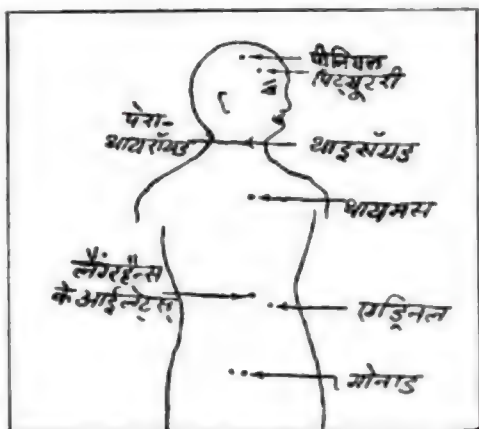 पीनियल
पिट्यूटरी
पेरा-
थायरॉयड
थाइरॉयड
थायमस
लैंगरहैन्स
के आईलेट्स्
एड्रिनल
गोनाड